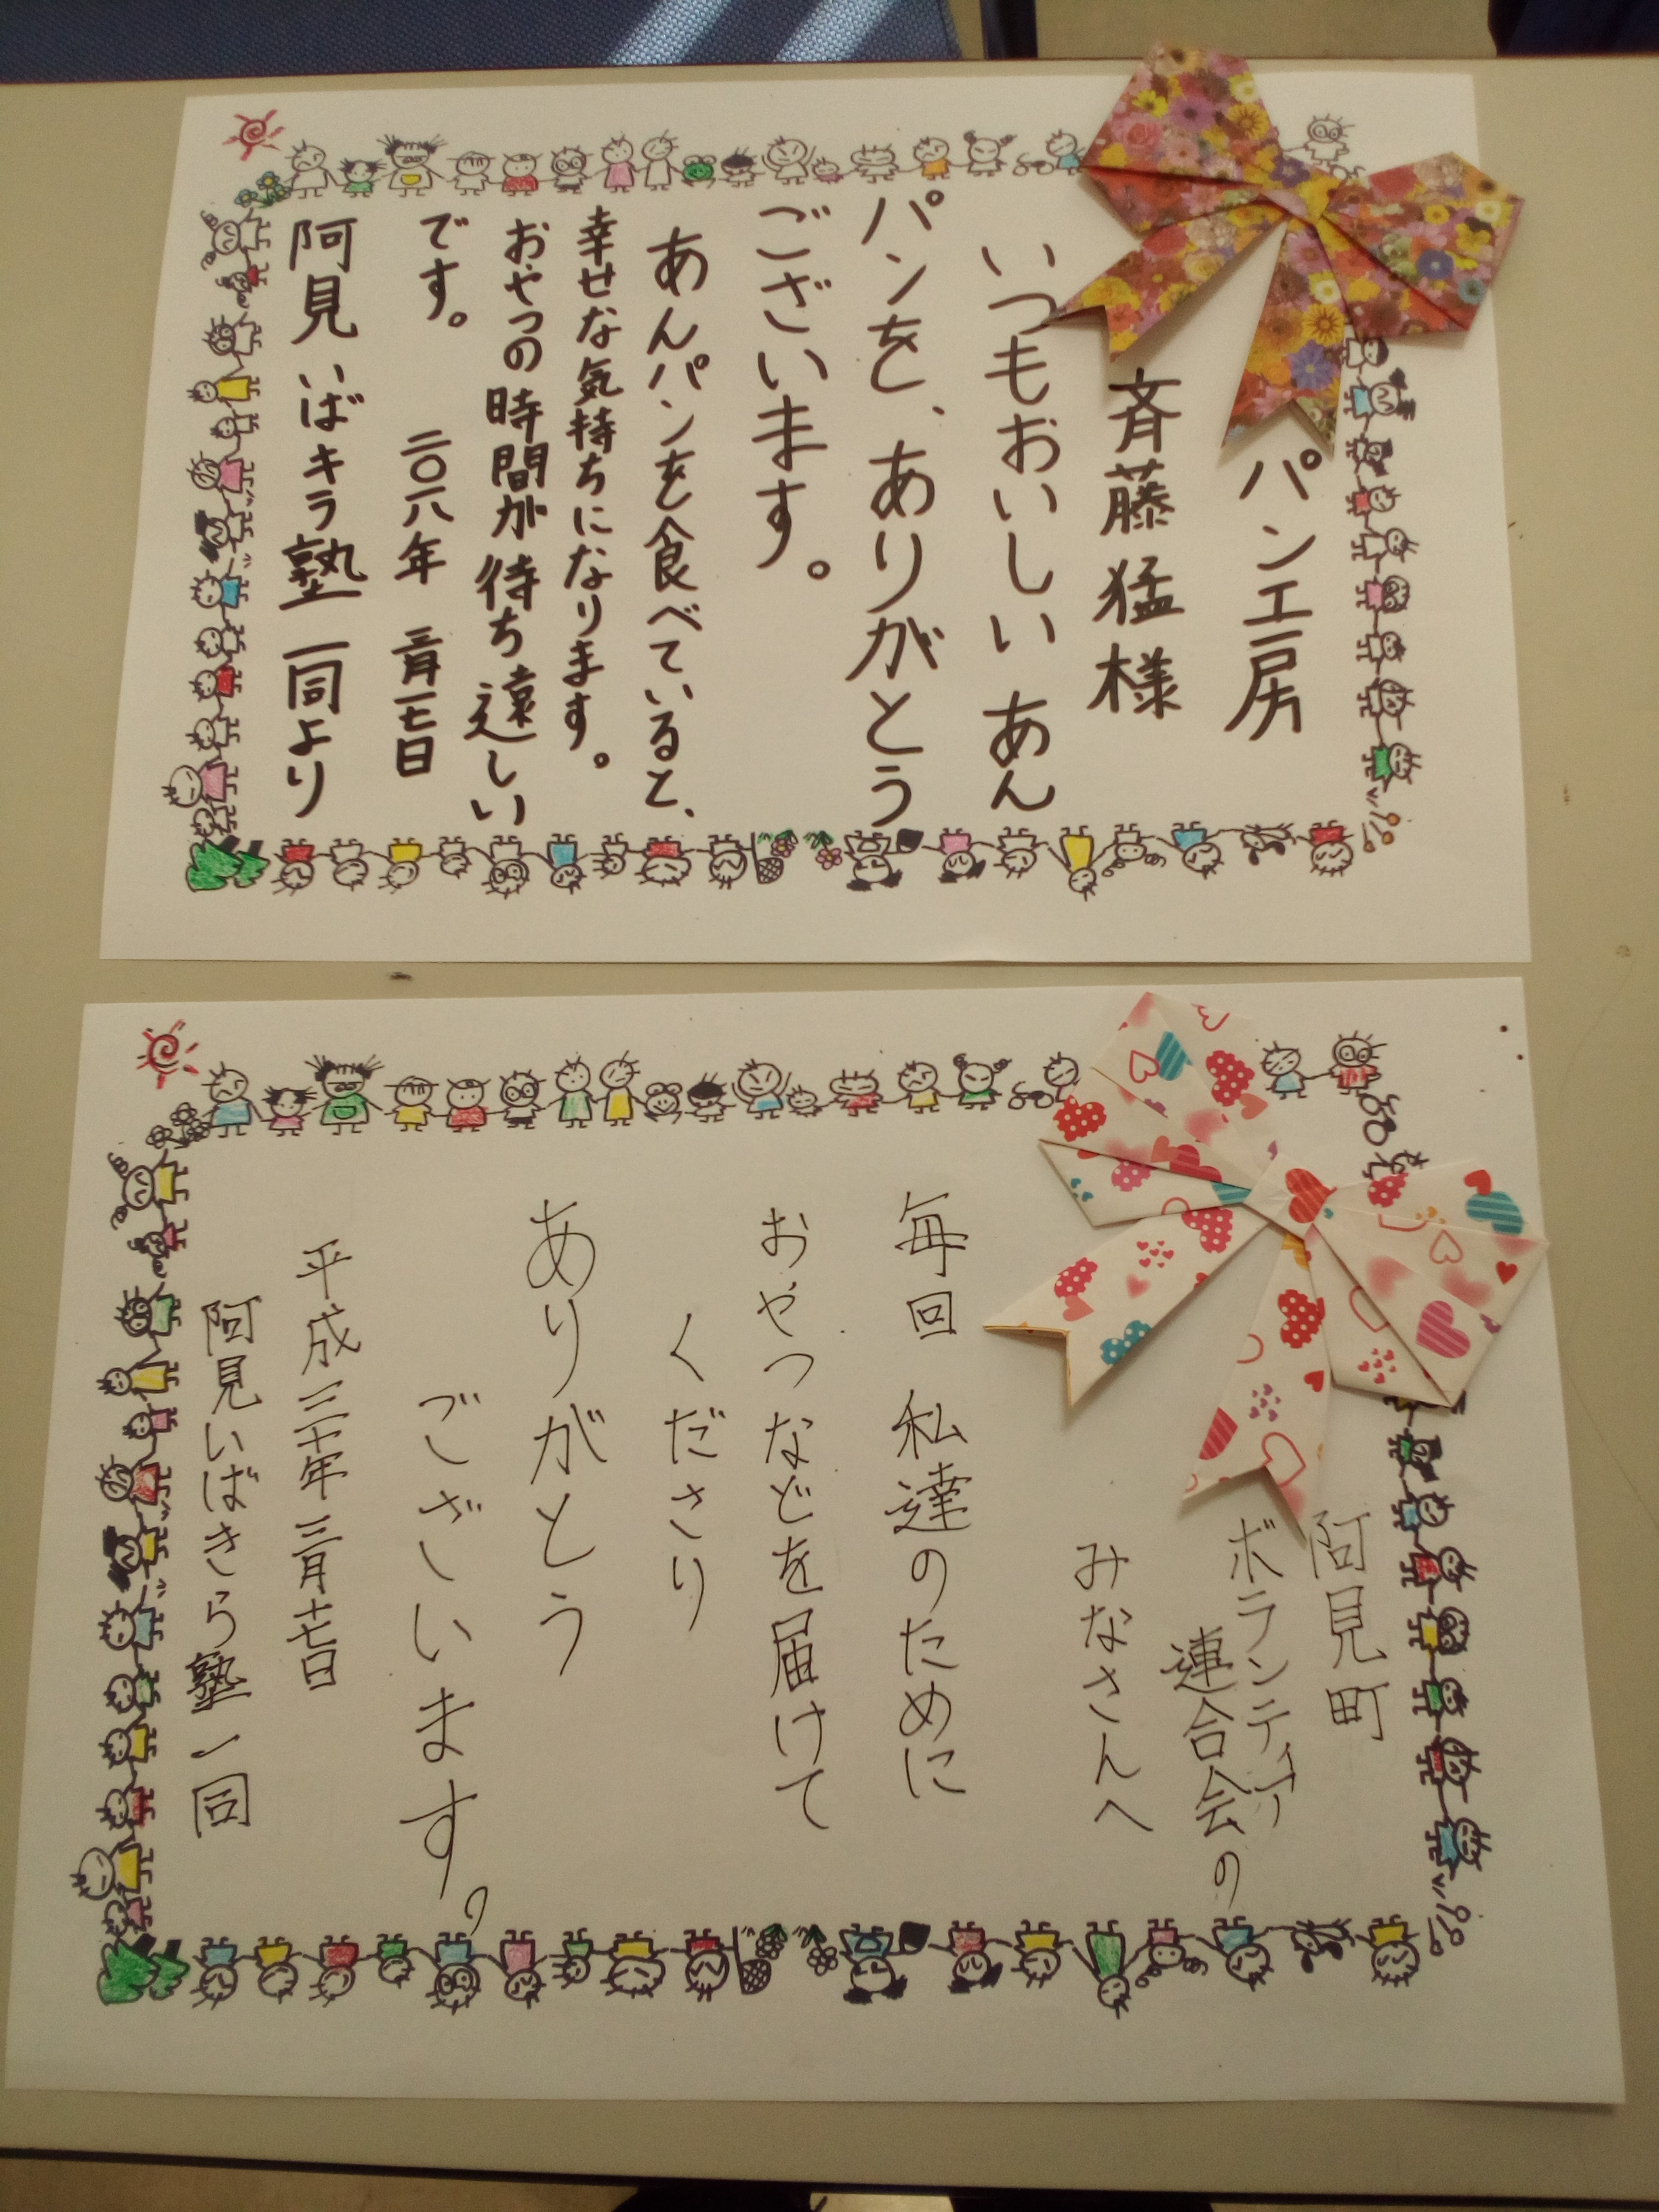 パン工房
斉藤猛様
いつもおいしいあん
パンを、ありがとう
ございます。
あんパンを食べていると、
幸せな気持ちになります。
おやつの時間が待ち遠しい
です。
二〇一八年 三月十七日
阿見いばキラ塾一同より
阿見町
ボランティア
連合会の
みなさんへ
毎回 私達のために
おやつなどを届けて
くださり
ありがとう
ございます。
平成三十年三月十七日
阿見いばきら塾一同